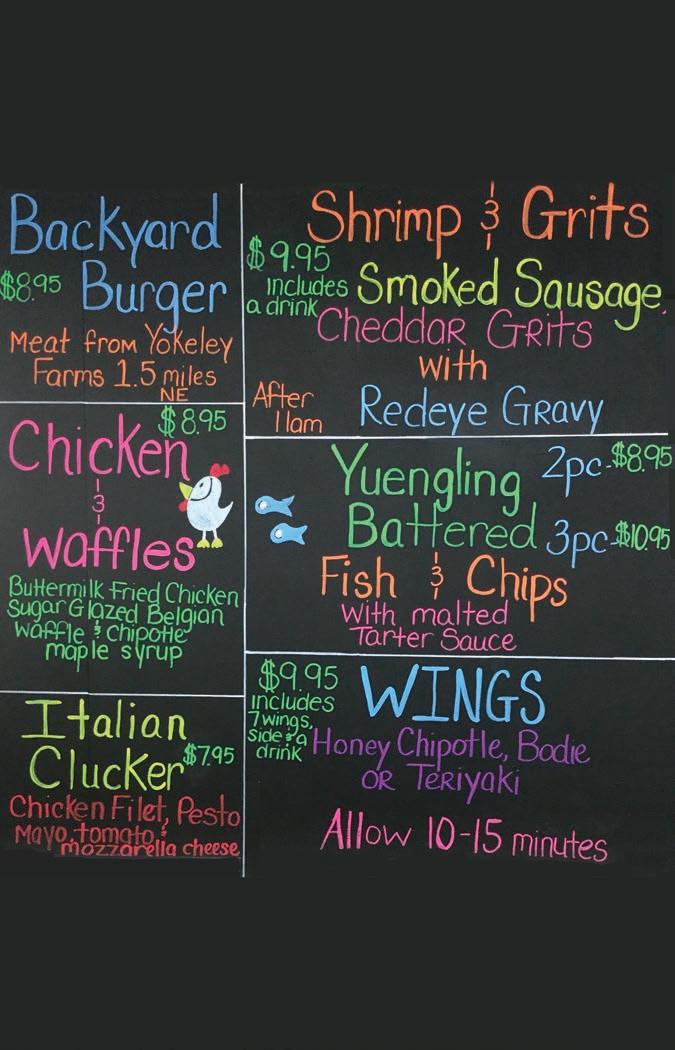 Backyard
$8.95 Burger
Meat from Yokeley
Farms 1.5 miles
NE
$8.95
Chicken
&
Waffles
Buttermilk Fried Chicken
Sugar Glazed Belgian
Waffle & Chipotle
maple syrup
Italian
Clucker $7.95
Chicken Filet, Pesto
Mayo, tomato, &
mozzarella cheese
Shrimp & Grits
$9.95
includes
a drink
Smoked Sausage,
Cheddar Grits
with
Redeye Gravy
After
11am
Yuengling
Battered
2pc-$8.95
3pc-$10.95
Fish & Chips
with malted
Tarter Sauce
$9.95
includes
7 wings,
side & a
drink
WINGS
Honey Chipotle, Bodie
or Teriyaki
Allow 10-15 minutes